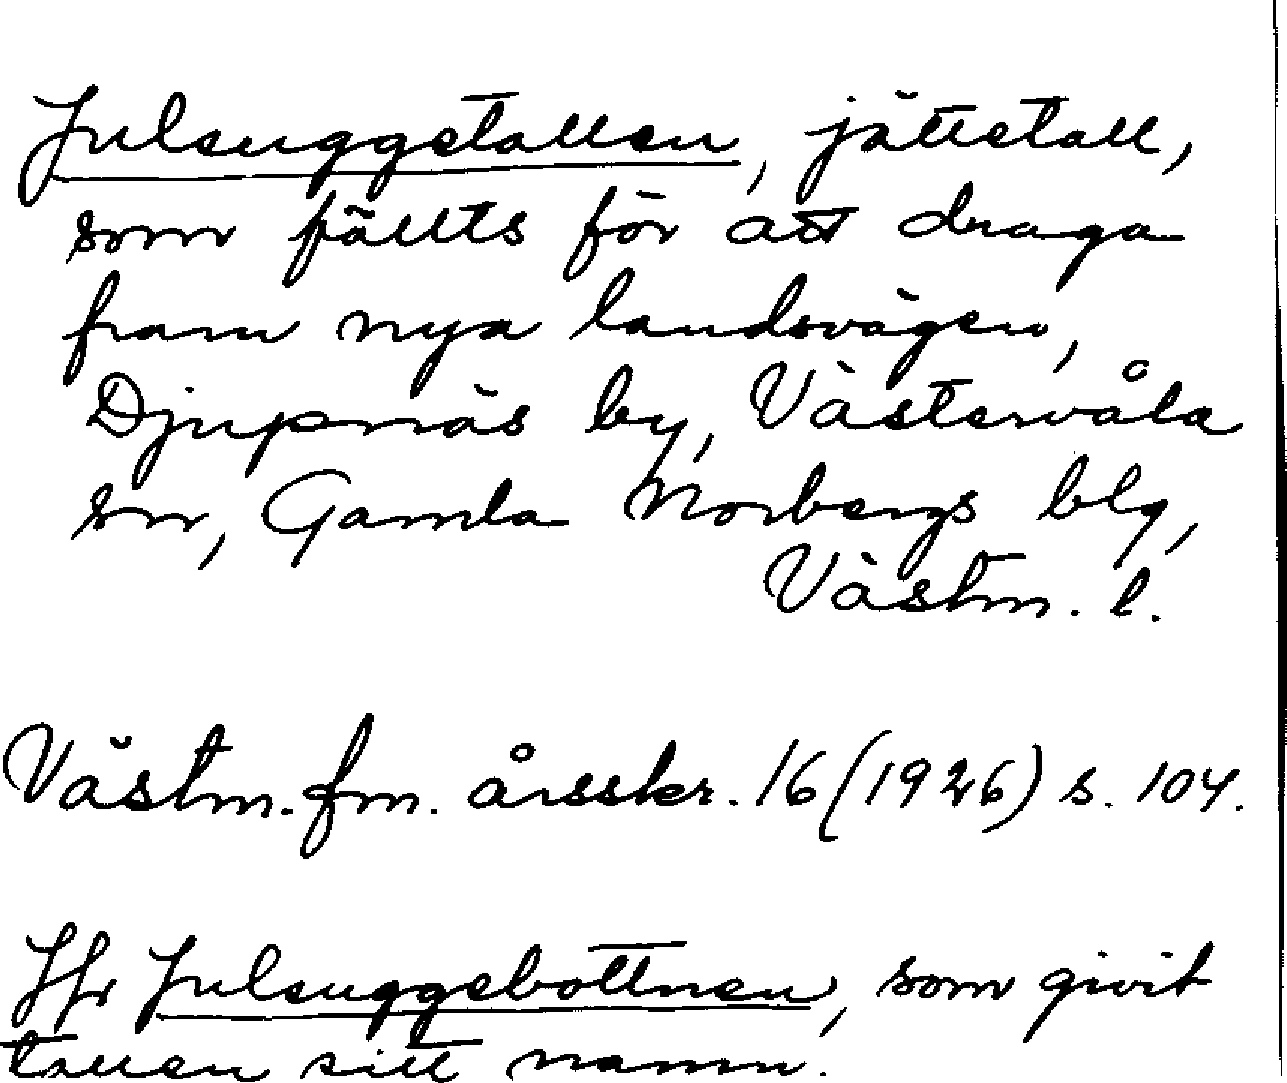 Julsuggetallen, jättetall,
som fällts för att draga
fram nya landsvägen,
Djupnäs by, Västervåla
sn, Gamla Norbergs blg,
Västm. l.
Västm. fm. årsskr. 16 (1926) s. 104.
Jfr Julsuggebottnen, som givit
tallen sitt namn.